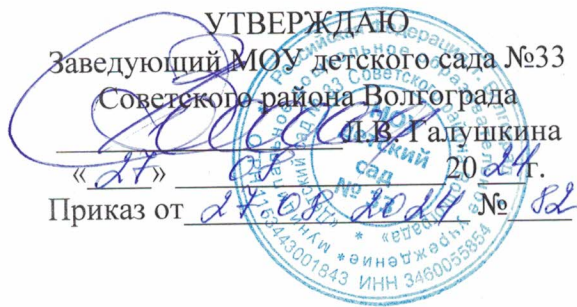 УТВЕРЖДАЮ
Заведующий МОУ детского сада №33
Советского района Волгограда
Л.В. Галушкина
«27» 08 2024г.
Приказ от 27.08 2024 № 82
МОУ
детский
сад
ИНН 3460055854